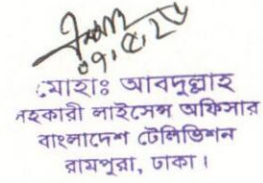 ০৭/৫/২৫
মোহাঃ আবদুল্লাহ
সহকারী লাইসেন্স অফিসার
বাংলাদেশ টেলিভিশন
রামপুরা, ঢাকা।